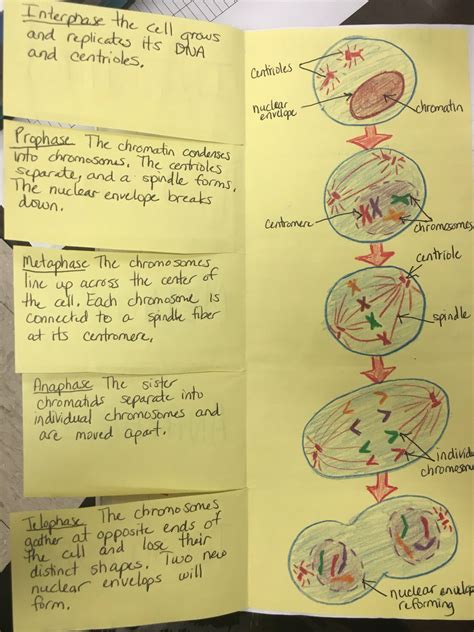 Interphase The cell grows
and replicates its DNA
and centrioles.
Centrioles
nuclear
envelope
chromatin
Prophase The chromatin condenses
into chromosomes. The centrioles
separate, and a spindle forms.
The nuclear envelope breaks
down.
Centromere
chromosomes
Metaphase The chromosomes
line up across the center of
the cell. Each chromosome is
connected to a spindle fiber
at its centromere.
centriole
spindle
Anaphase The sister
chromatids separate into
individual chromosomes and
are moved apart.
individual
chromosome
Telophase The chromosomes
gather at opposite ends of
the cell and lose their
distinct shapes. Two new
nuclear envelops will
form.
nuclear envelope
reforming